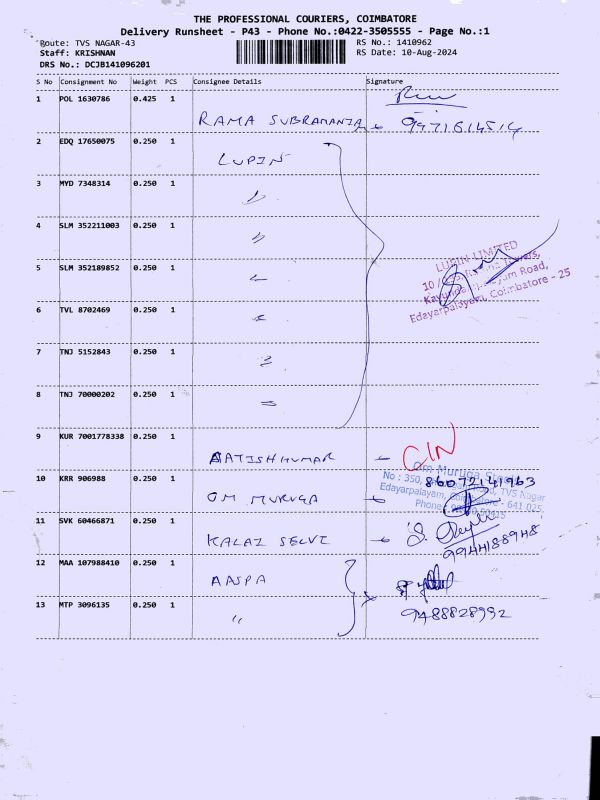 THE PROFESSIONAL COURIERS, COIMBATORE
Delivery Runsheet - P43 - Phone No.:0422-3505555 - Page No.:1
Route: TVS NAGAR-43
RS No.: 1410962
Staff: KRISHNAN
RS Date: 10-Aug-2024
DRS No.: DCJB141096201
S No Consignment No Weight PCS Consignee Details Signature
1 POL 1630786 0.425 1
RAMA SUBRAMANIA
2 EDQ 17650075 0.250 1
LUPIN
3 MYD 7348314 0.250 1 "
4 SLM 352211003 0.250 1 "
5 SLM 352189852 0.250 1
LUPIN LIMITED
Kavundampalayam Road,
Edayarpalayam, Coimbatore - 25
6 TVL 8702469 0.250 1
7 TNJ 5152843 0.250 1
8 TNJ 70000202 0.250 1
9 KUR 7001778338 0.250 1
AATISHKUMAR - C/N
Om Muruga
10 KRR 906988 0.250 1
No : 350, TVS Nagar
86072141963
OM MURUGA
Edayarpalayam, Coimbatore - 641 025
Phone :
11 SVK 60466871 0.250 1
KALAI SELVI
9944188948
12 MAA 107988410 0.250 1
AASPA
13 MTP 3096135 0.250 1
" 9488828992